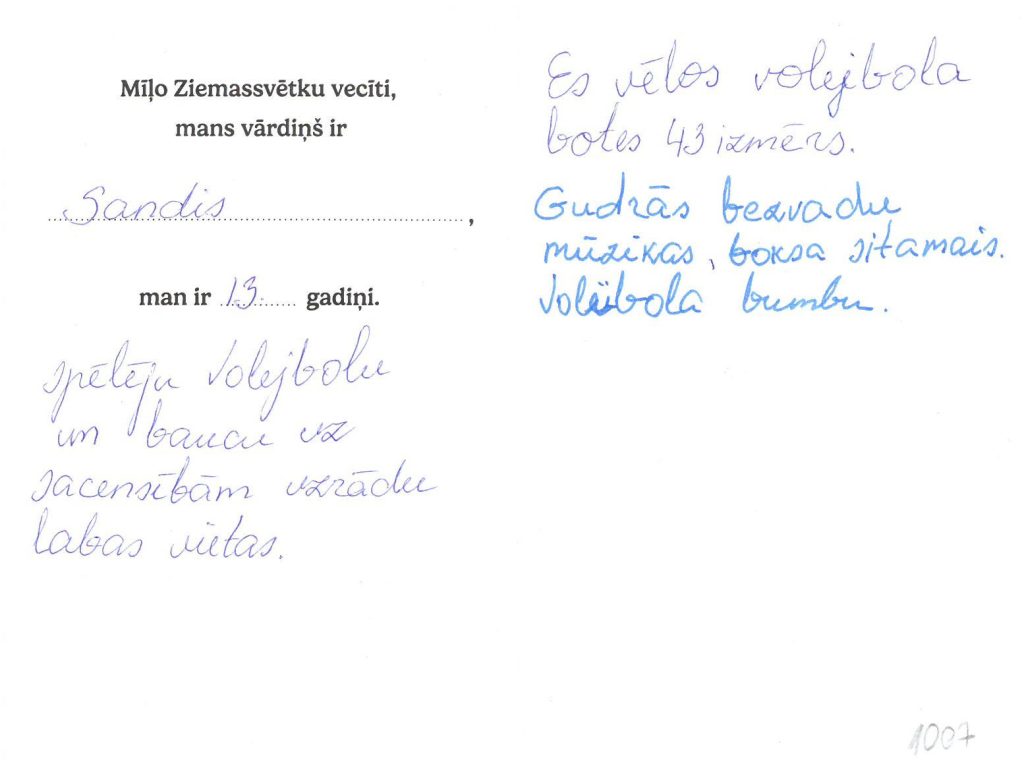 Mīļo Ziemassvētku vecīti,
mans vārdiņš ir
Sandis,
man ir 13. gadiņi.
spēlēju volejbolu
un braucu uz
sacensībām uzrādu
labas vietas.
Es vēlos volejbola
botes 43 izmērs.
Gudrās bezvadu
mūzikas, boksa sitamais.
Volibola bumbu.
1007